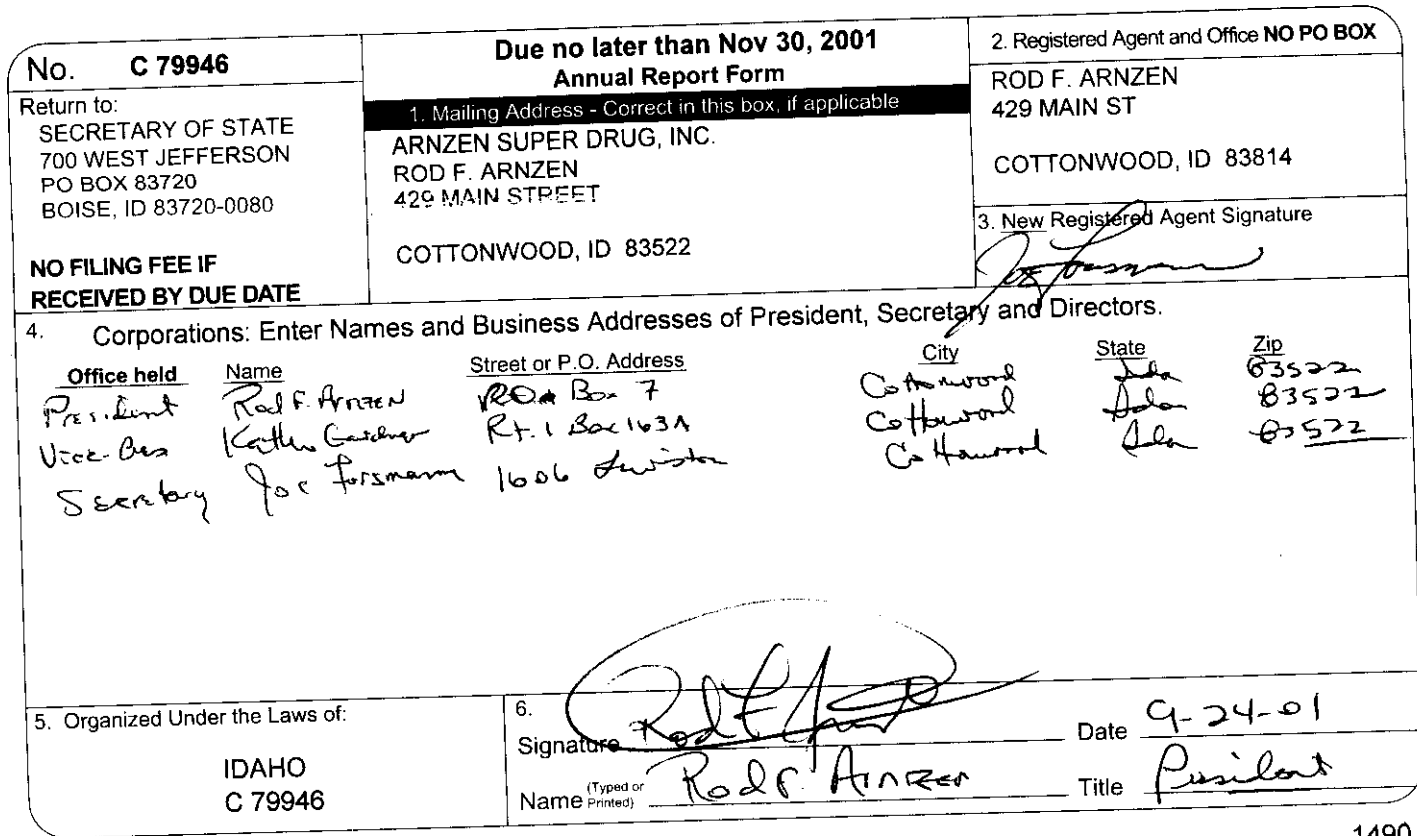 No. C 79946
Return to:
SECRETARY OF STATE
700 WEST JEFFERSON
PO BOX 83720
BOISE, ID 83720-0080
NO FILING FEE IF
RECEIVED BY DUE DATE
Due no later than Nov 30, 2001
Annual Report Form
1. Mailing Address - Correct in this box, if applicable
ARNZEN SUPER DRUG, INC.
ROD F. ARNZEN
429 MAIN STREET
COTTONWOOD, ID 83522
2. Registered Agent and Office NO PO BOX
ROD F. ARNZEN
429 MAIN ST
COTTONWOOD, ID 83814
3. New Registered Agent Signature
Joe Forsmann
4. Corporations: Enter Names and Business Addresses of President, Secretary and Directors.
Office held Name Street or P.O. Address City State Zip
President Rod F. Arnzen Box 7 Cottonwood Ida 83522
Vice-Pres Gardner Rt. 1 Box 163A Cottonwood Ida 83522
Secretary Joe Forsmann 1606 Lewiston Cottonwood Ida 83522
5. Organized Under the Laws of:
IDAHO
C 79946
6.
Signature Rod F. Arnzen Date 9-24-01
Name (Typed or Printed) Rod F. Arnzen Title President
1490